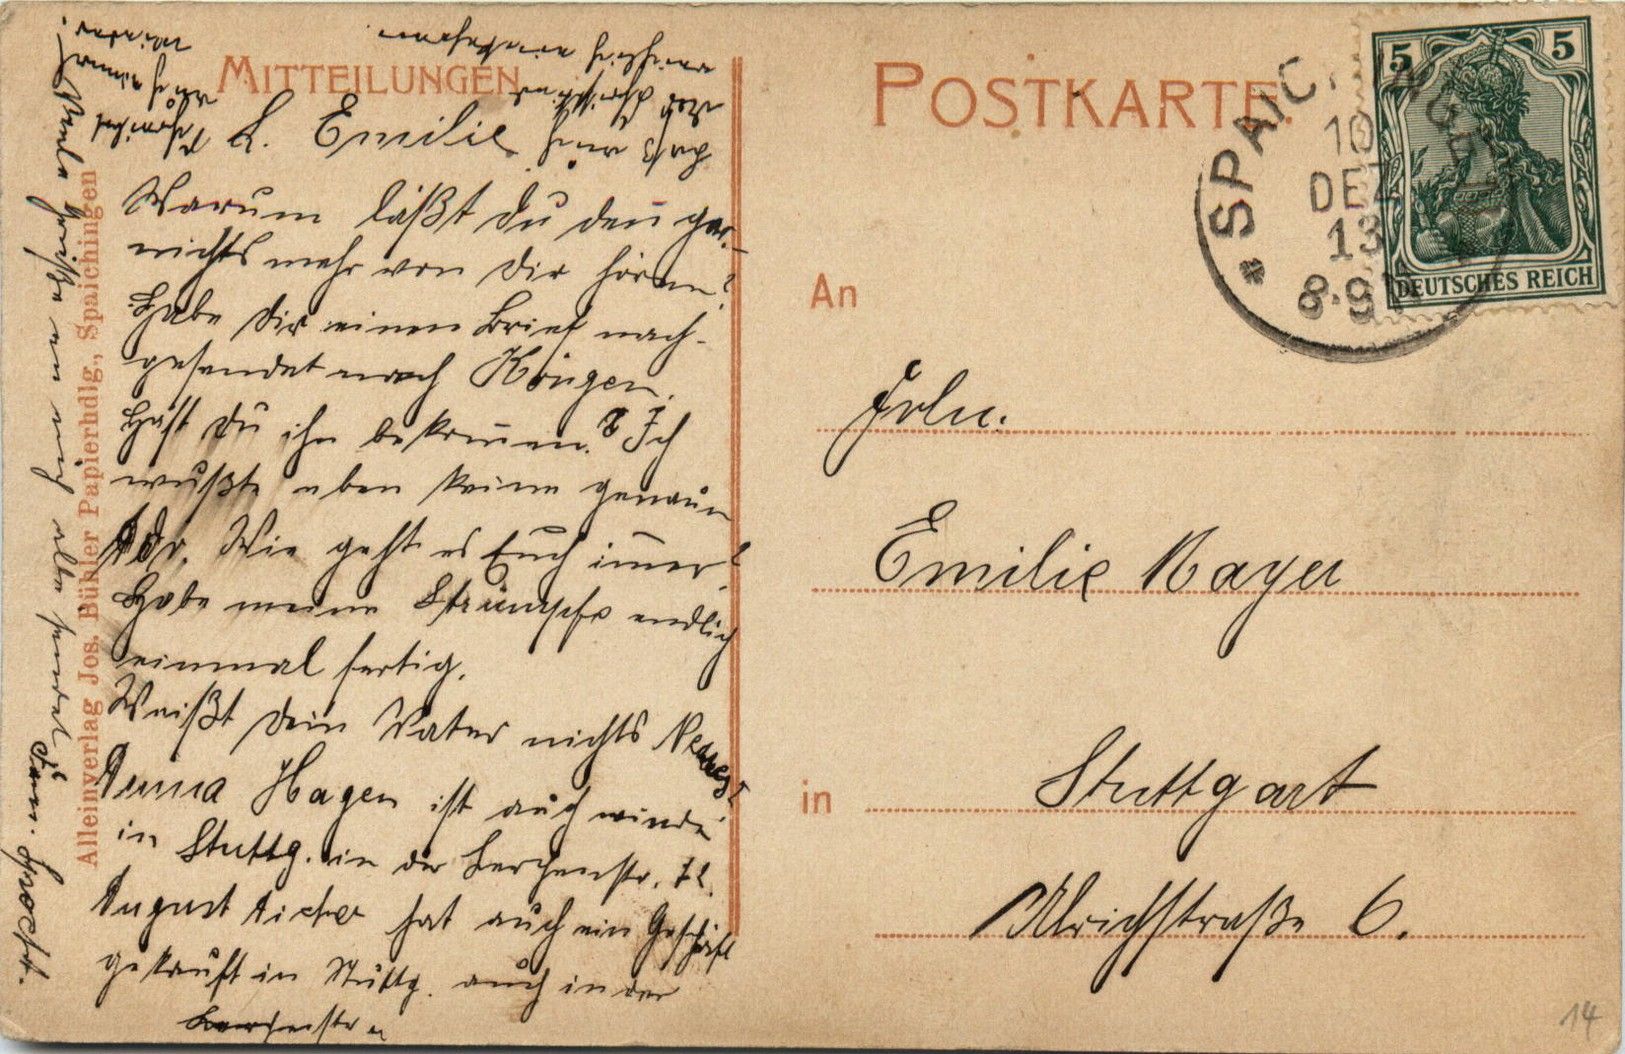 MITTEILUNGEN
POSTKARTE
L. Emilie
Warum läßt du den gar-
nichts mehr von dir hören?
Habe dir einen Brief nach-
gesendet nach Köngen.
Hast du ihn bekommen? Ich
wußte eben keine genaue
Adr. Wie geht es Euch immer?
Habe meine Strümpfe endlich
einmal fertig.
Weißt dein Vater nichts Neues?
Anna Hagen ist auch wieder
in Stuttg. in der Lerchenstr. 72.
August Aicher hat auch ein Geschäft
gekauft in Stuttg. auch in der
Lerchenstr
Viele Grüße an euch alle sendet
Alleinverlag Jos. Bühler Papierhdlg., Spaichingen
SPAICHINGEN
10
DEZ
13
8-9
5 5
DEUTSCHES REICH
An
Frln.
Emilie Mayer
in Stuttgart
Ulrichstraße 6.
14